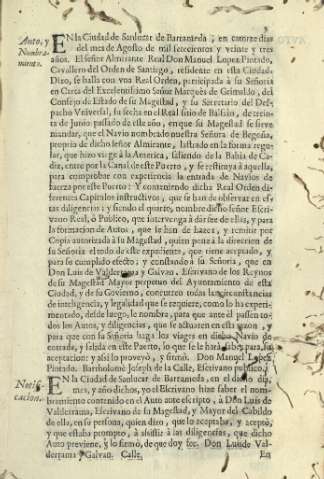 Auto, y
Nombra-
miento.
EN la Ciudad de Sanlucar de Barrameda, en catorze dias
del mes de Agosto de mil setecientos y veinte y tres
años. El señor Almirante Real Don Manuel Lopez Pintado,
Cavallero del Orden de Santiago, residente en esta Ciudad.
Dixo, se halla con vna Real Orden, participada à su Señoria
en Carta del Excelentissimo Señor Marquès de Grimaldo, del
Consejo de Estado de su Magestad, y su Secretario del Des-
pacho Vniversal, su fecha en el Real sitio de Balsain, de treinta
de Junio passado de este año, en que su Magestad se sirve
mandar, que el Navio nombrado nuestra Señora de Begoña,
propria de dicho señor Almirante, lastrado en la forma regu-
lar, que hizo viage à la America, saliendo de la Bahia de Ca-
diz, entre por la Canal de este Puerto, y se restituya à aquella,
para comprobar con experiencia la entrada de Navios de
fuerza por este Puerto: Y conteniendo dicha Real Orden di-
ferentes Capitulos instructivos, que se han de observar en es-
tas diligencias; y siendo el quinto, nombre dicho señor Escri-
vano Real, ò Publico, que intervenga à dar fee de ellas, y para
la formacion de Autos, que se han de hazer, y remitir por
Copia autorizada à su Magestad, quien pone à la direccion de
su Señoria el todo de este expediente, que tiene aceptado, y
para su cumplido efecto; y constando à su Señoria, que en
Don Luis de Valderrama y Galvan, Escrivano de los Reynos
de su Magestad Mayor perpetuo del Ayuntamiento de esta
Ciudad, y de su Govierno, concurren todas las circunstancias
de inteligencia, y legalidad que se requiere, como lo ha experi-
mentado, desde luego, le nombra, para que ante èl passen to-
dos los Autos, y diligencias, que se actuaren en esta razon, y
para que con su Señoria haga los viages en dicho Navio de
entrada, y salida en este Puerto, lo que se le harà saber para su
aceptacion: y assi lo proveyò, y firmò. Don Manuel Lopez
Pintado. Bartholomè Joseph de la Calle, Escrivano publico.
Notifi-
cacion.
EN la Ciudad de Sanlucar de Barrameda, en el dicho dia,
mes, y año dichos, yo el Escrivano hize saber el nom-
bramiento contenido en el Auto ante escripto, à Don Luis de
Valderrama, Escrivano de su Magestad, y Mayor del Cabildo
de ella, en su persona, quien dixo, que lo aceptaba, y aceptò,
y que estaba prompto, à assistir à las diligencias, que dicho
Auto previene, y lo firmò, de que doy fee. Don Luis de Val-
derrama y Galvan. Calle,
En